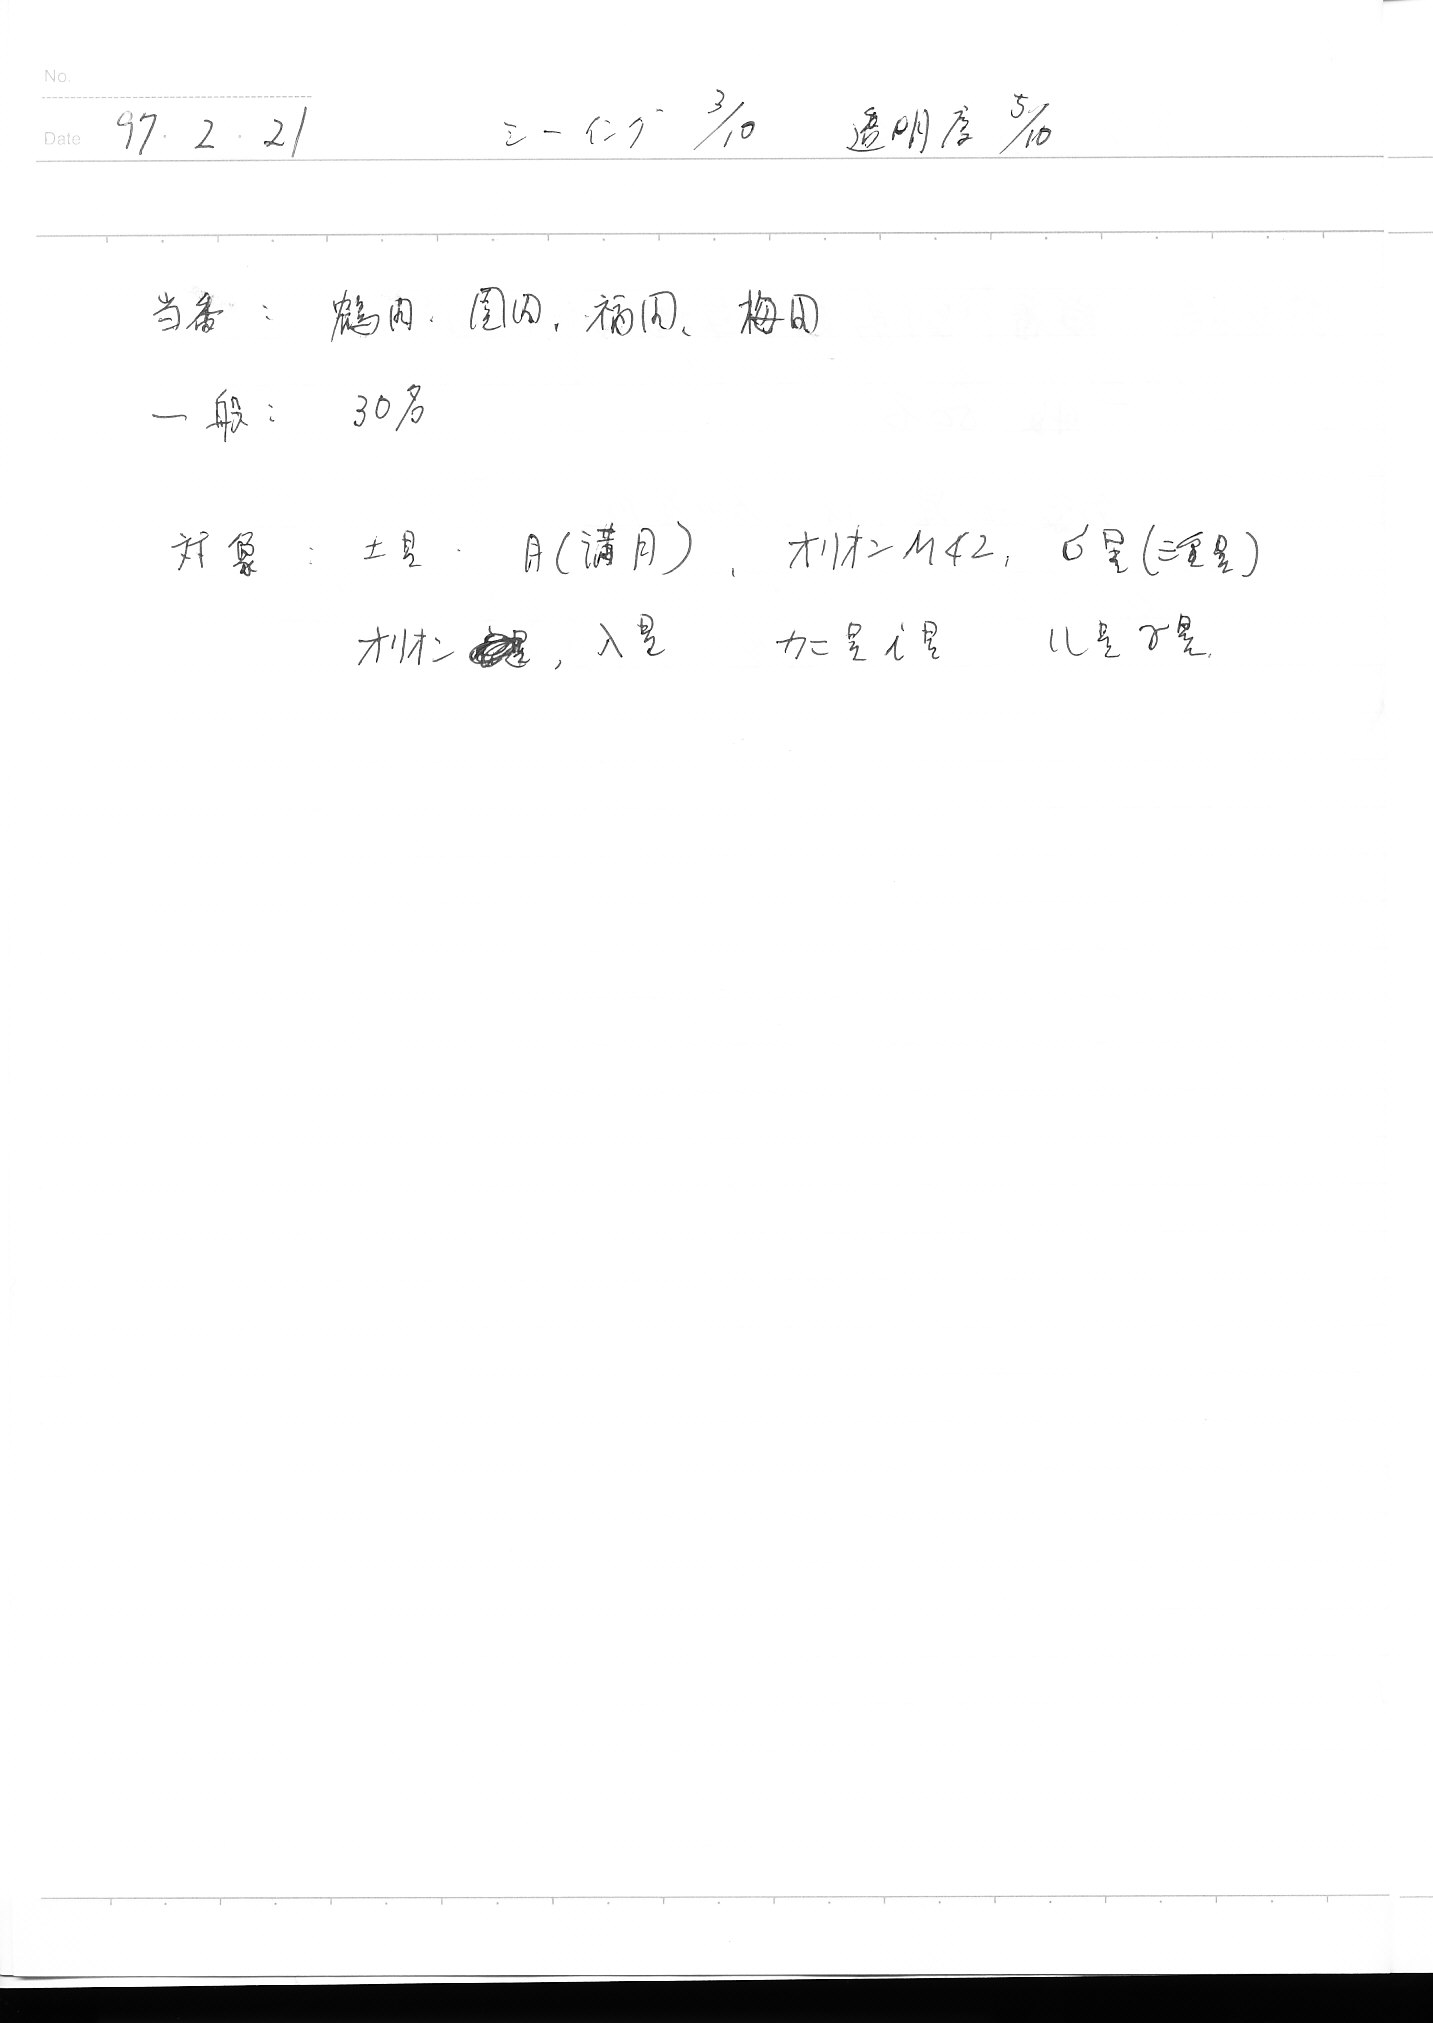 No.
Date 97・2・21 シーイング 3/10 透明度 5/10
当番: 鶴内、園田、福田、梅田
一般: 30名
対象: 土星、月(満月)、オリオンM42、σ星(三重星)
オリオン、λ星 カニ星ι星 しし星γ星